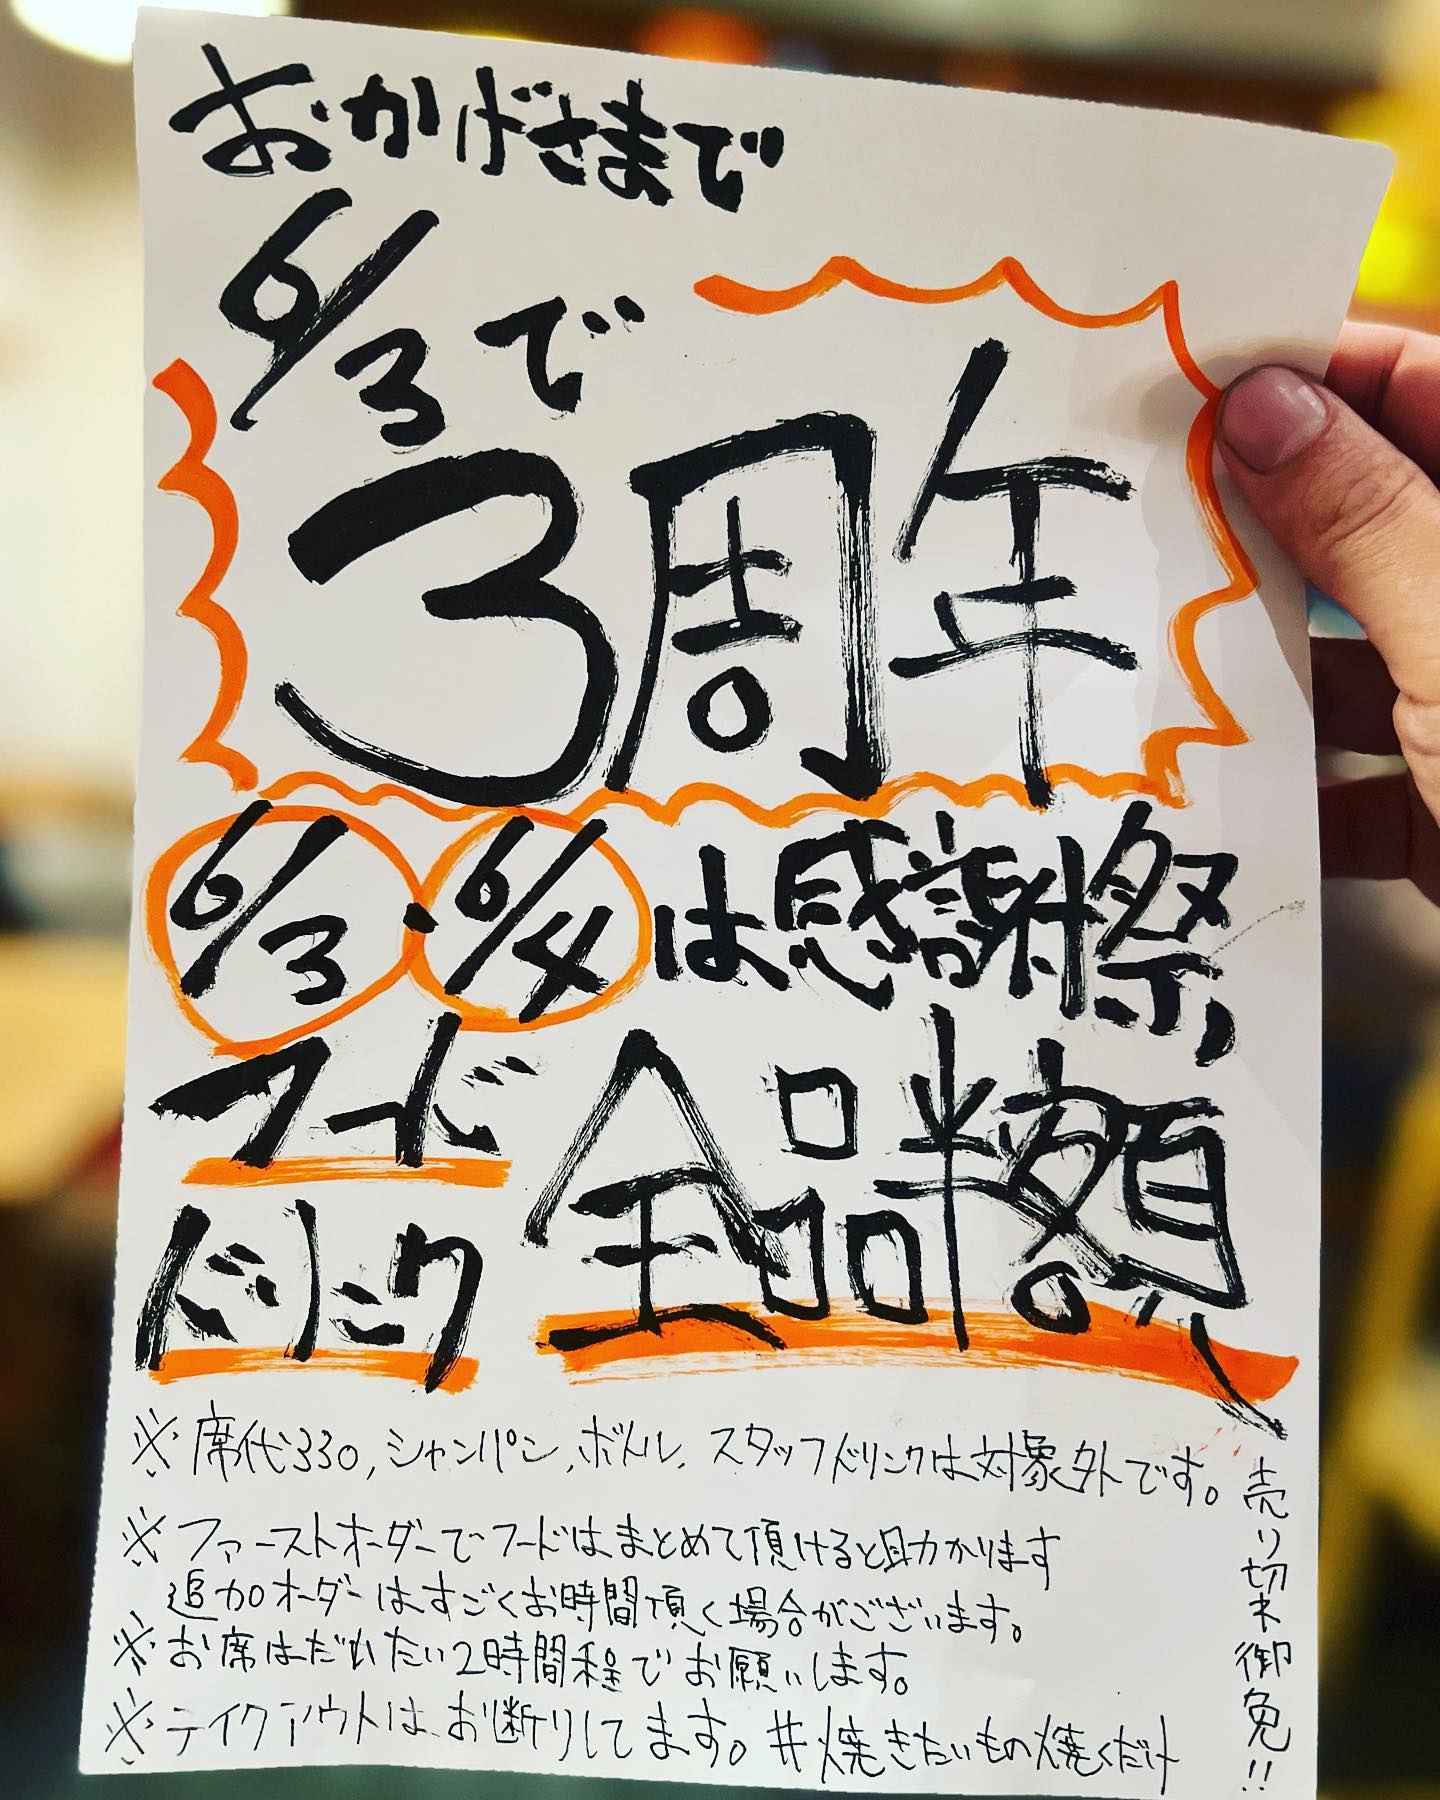 おかげさまで
6/3で
3周年
6/3・6/4は感謝祭
フード
ドリンク
全品半額
※席代330,シャンパン,ボトル,スタッフドリンクは対象外です。
※ファーストオーダーでフードはまとめて頂けると助かります
追加オーダーはすごくお時間頂く場合がございます。
※お席はだいたい2時間程でお願いします。
※テイクアウトは、お断りしてます。#焼きたいもの焼くだけ
売り切れ御免!!